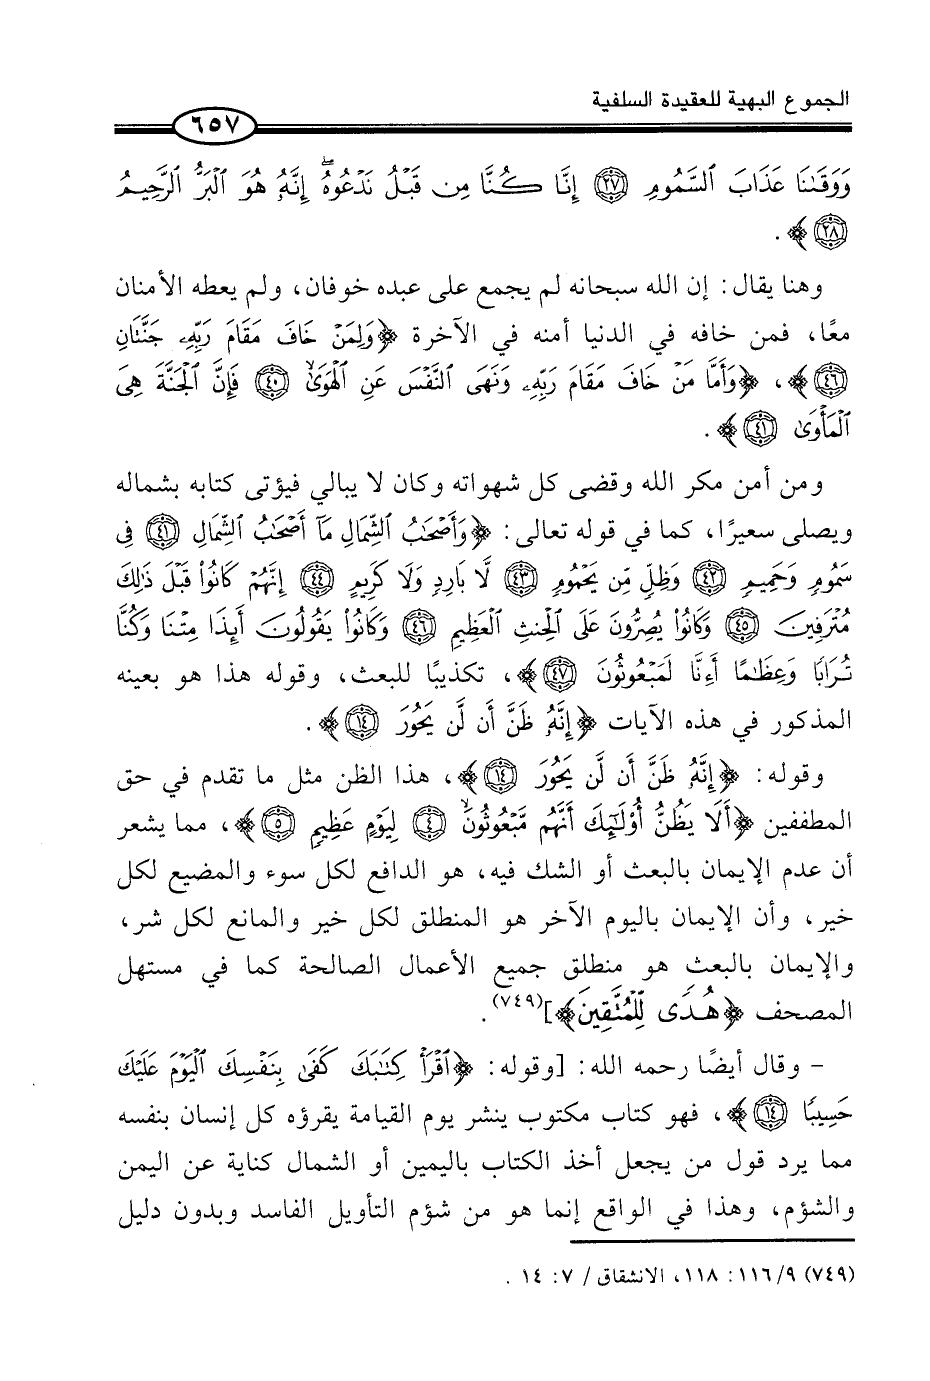 الجموع البهية للعقيدة السلفية
٦٥٧
وَوَقَىٰنَا عَذَابَ ٱلسَّمُومِ ﴿٢٧﴾ إِنَّا كُنَّا مِن قَبْلُ نَدْعُوهُ ۖ إِنَّهُۥ هُوَ ٱلْبَرُّ ٱلرَّحِيمُ
﴿٢٨﴾ ﴾ .
وهنا يقال: إن الله سبحانه لم يجمع على عبده خوفان، ولم يعطه الأمنان
معًا، فمن خافه في الدنيا أمنه في الآخرة ﴿وَلِمَنْ خَافَ مَقَامَ رَبِّهِۦ جَنَّتَانِ
﴿٤٦﴾ ﴾، ﴿وَأَمَّا مَنْ خَافَ مَقَامَ رَبِّهِۦ وَنَهَى ٱلنَّفْسَ عَنِ ٱلْهَوَىٰ ﴿٤٠﴾ فَإِنَّ ٱلْجَنَّةَ هِىَ
ٱلْمَأْوَىٰ ﴿٤١﴾ ﴾ .
ومن أمن مكر الله وقضى كل شهواته وكان لا يبالي فيؤتى كتابه بشماله
ويصلى سعيرًا، كما في قوله تعالى: ﴿وَأَصْحَٰبُ ٱلشِّمَالِ مَآ أَصْحَٰبُ ٱلشِّمَالِ ﴿٤١﴾ فِى
سَمُومٍ وَحَمِيمٍ ﴿٤٢﴾ وَظِلٍّ مِّن يَحْمُومٍ ﴿٤٣﴾ لَّا بَارِدٍ وَلَا كَرِيمٍ ﴿٤٤﴾ إِنَّهُمْ كَانُوا۟ قَبْلَ ذَٰلِكَ
مُتْرَفِينَ ﴿٤٥﴾ وَكَانُوا۟ يُصِرُّونَ عَلَى ٱلْحِنثِ ٱلْعَظِيمِ ﴿٤٦﴾ وَكَانُوا۟ يَقُولُونَ أَئِذَا مِتْنَا وَكُنَّا
تُرَابًا وَعِظَٰمًا أَءِنَّا لَمَبْعُوثُونَ ﴿٤٧﴾ ﴾، تكذيبًا للبعث، وقوله هذا هو بعينه
المذكور في هذه الآيات ﴿إِنَّهُۥ ظَنَّ أَن لَّن يَحُورَ ﴿١٤﴾ ﴾ .
وقوله: ﴿إِنَّهُۥ ظَنَّ أَن لَّن يَحُورَ ﴿١٤﴾ ﴾، هذا الظن مثل ما تقدم في حق
المطففين ﴿أَلَا يَظُنُّ أُو۟لَٰٓئِكَ أَنَّهُم مَّبْعُوثُونَ ﴿٤﴾ لِيَوْمٍ عَظِيمٍ ﴿٥﴾ ﴾، مما يشعر
أن عدم الإيمان بالبعث أو الشك فيه، هو الدافع لكل سوء والمضيع لكل
خير، وأن الإيمان باليوم الآخر هو المنطلق لكل خير والمانع لكل شر،
والإيمان بالبعث هو منطلق جميع الأعمال الصالحة كما في مستهل
المصحف ﴿هُدًى لِّلْمُتَّقِينَ﴾](٧٤٩).
- وقال أيضًا رحمه الله: [وقوله: ﴿ٱقْرَأْ كِتَٰبَكَ كَفَىٰ بِنَفْسِكَ ٱلْيَوْمَ عَلَيْكَ
حَسِيبًا ﴿١٤﴾ ﴾، فهو كتاب مكتوب ينشر يوم القيامة يقرؤه كل إنسان بنفسه
مما يرد قول من يجعل أخذ الكتاب باليمين أو الشمال كناية عن اليمن
والشؤم، وهذا في الواقع إنما هو من شؤم التأويل الفاسد وبدون دليل
(٧٤٩) ٩/ ١١٦: ١١٨، الانشقاق / ٧: ١٤ .